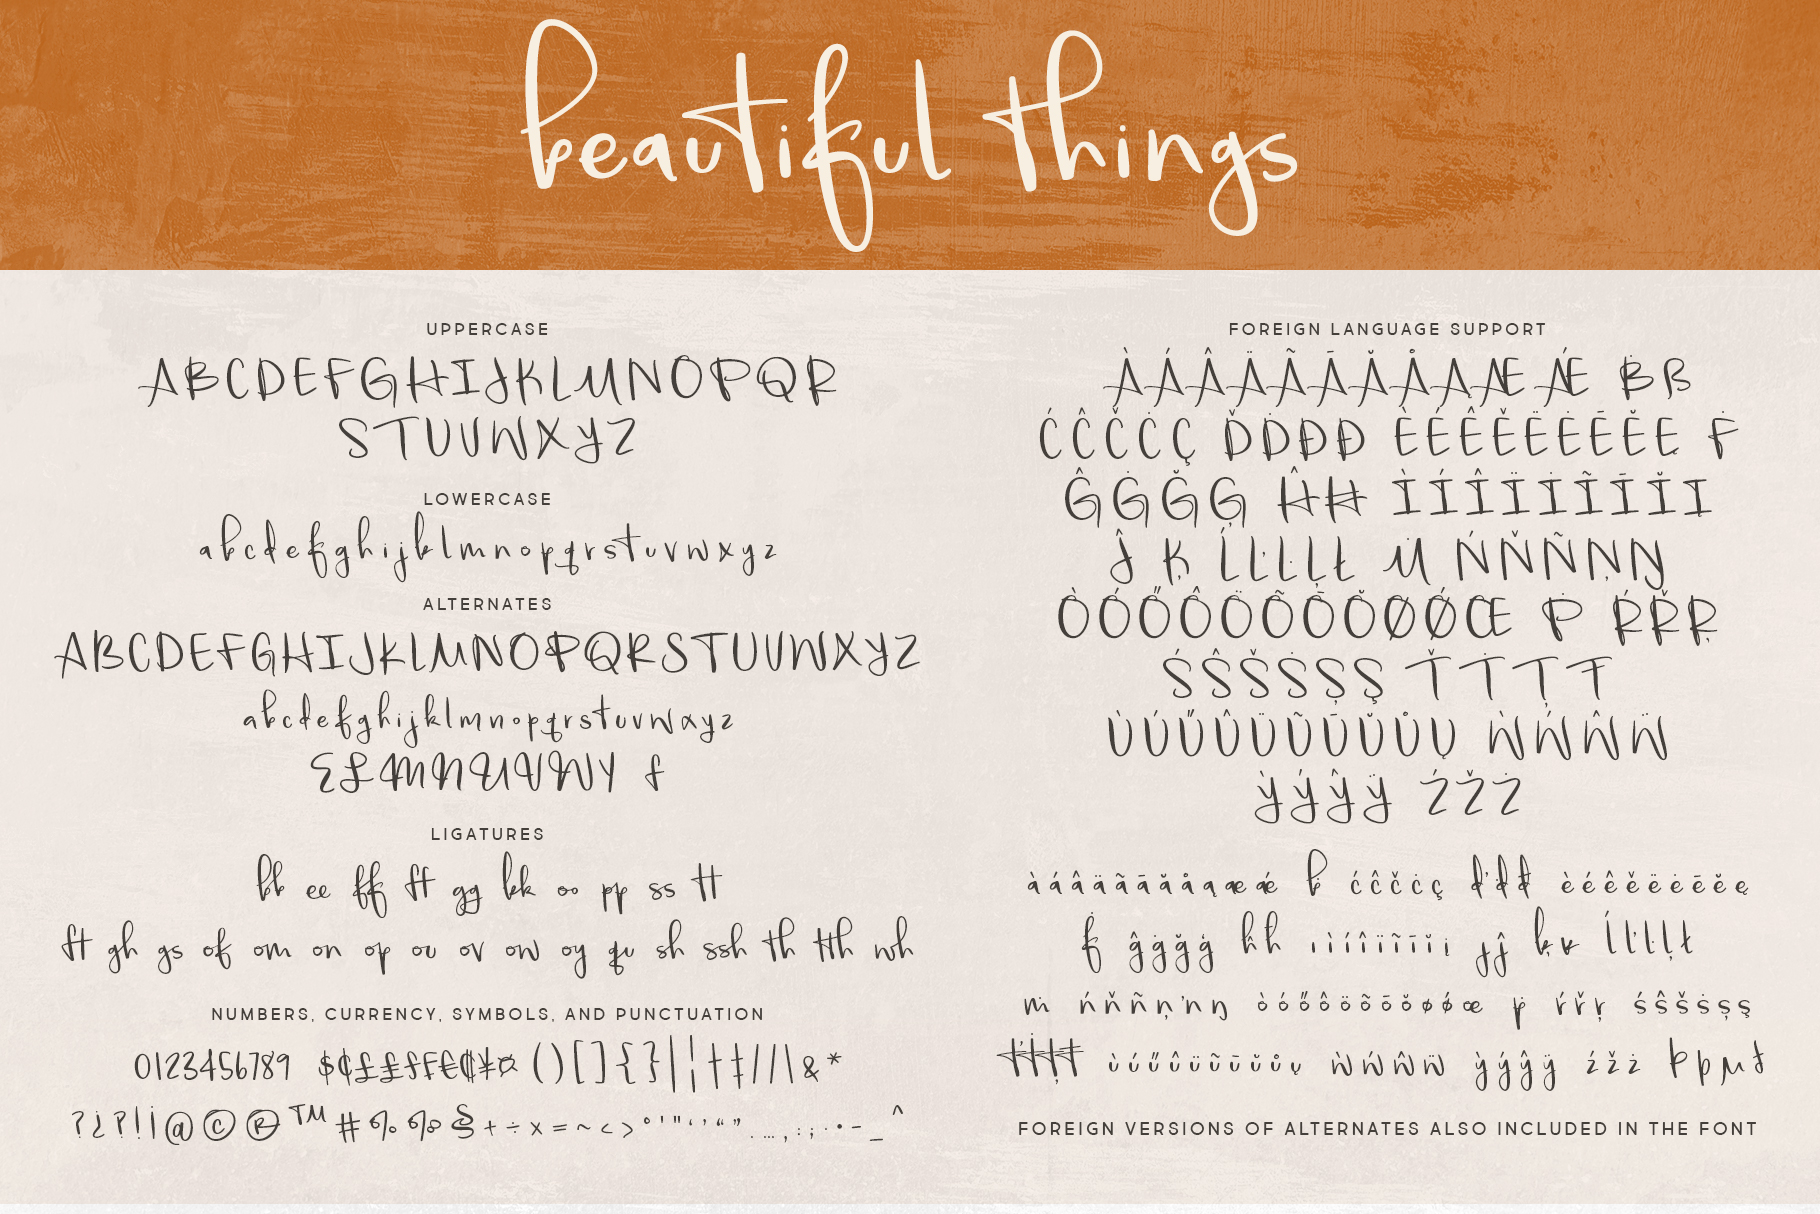 beautiful things
UPPERCASE
ABCDEFGHIJKLMNOPQR
STUUVWXYZ
LOWERCASE
abcdefghijklmnopqrstuvwxyz
ALTERNATES
ABCDEFGHIJKLMNOPQRSTUUVWXYZ
abcdefghijklmnopqrstuvwxyz
ELMNUVWY f
LIGATURES
bb ee ff ff gg kk oo pp ss tt
ft gh gs of om on op ou ov ow oy qu sh ssh th tth wh
NUMBERS, CURRENCY, SYMBOLS, AND PUNCTUATION
0123456789 $¢£₤ƒ₣€₵¥¤ ( ) [ ] { } | ¦ † ‡ / / | \ & *
? ¿ ? ! ¡ @ © ® ™ # % ‰ § + ÷ × = ~ < > ° ' " ‘ ’ “ ” . … , : ; · • - _ ^
FOREIGN LANGUAGE SUPPORT
ÀÁÂÄÃĀĂÅĄÆǼ Ḃß
ĆĈČĊÇ ĎḊĐÐ ÈÉÊĚËĖĒĔĘ Ḟ
ĜĠĞĢ ĤĦ ÌÍÎÏİĨĪĬĮ
Ĵ Ķ ĹĽĿĻŁ Ṁ ŃŇÑŅŊ
ÒÓŐÔÖÕŌŎØǾŒ Ṗ ŔŘŖ
ŚŜŠṠȘŞ ŤṪȚŦ
ÙÚŰÛÜŨŪŬŮŲ ẀẂŴẄ
ỲÝŶŸ ŹŽŻ
àáâäãāăåąæǽ ḃ ćĉčċç ďḋđ èéêěëėēĕę
ḟ ĝġğģ ĥħ ıìíîïĩīĭį ȷĵ ķĸ ĺľŀļł
ṁ ńňñņŉŋ òóőôöõōŏøǿœ ṗ ŕřŗ śŝšṡșş
ťṫțŧ ùúűûüũūŭůų ẁẃŵẅ ỳýŷÿ źžż Þþµſ
FOREIGN VERSIONS OF ALTERNATES ALSO INCLUDED IN THE FONT